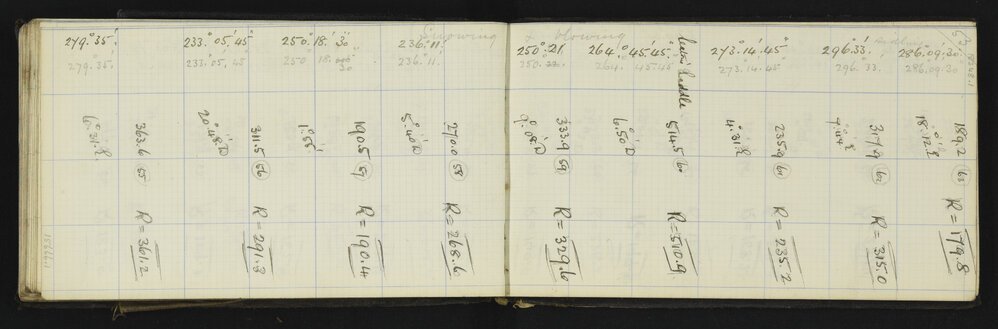 279° 35'
279° 35'
6° 31' R
363.6 (55)
R = 361.2
233° 05' 45"
233. 05, 45
20° 48' R
311.5 (56)
R = 291.3
250° 18' 30"
250 18. 30
1° 56'
190.5 (57)
R = 190.4
236° 11'
236. 11.
5° 40' R
270.0 (58)
R = 268.6
Snowing & blowing
250° 21
250.
333.9 (59)
R = 329.6
264° 45' 45"
264. 45.45
6° 50' R
514.5 (60)
R = 510.9
273° 14' 45"
273. 14. 45
4° 31' R
235.9 (61)
R = 235.2
296° 33'
296. 33.
317.9 (62)
R = 315.0
286° 09' 30"
286. 09. 30
18° 12' R
189.2 (63)
R = 179.8